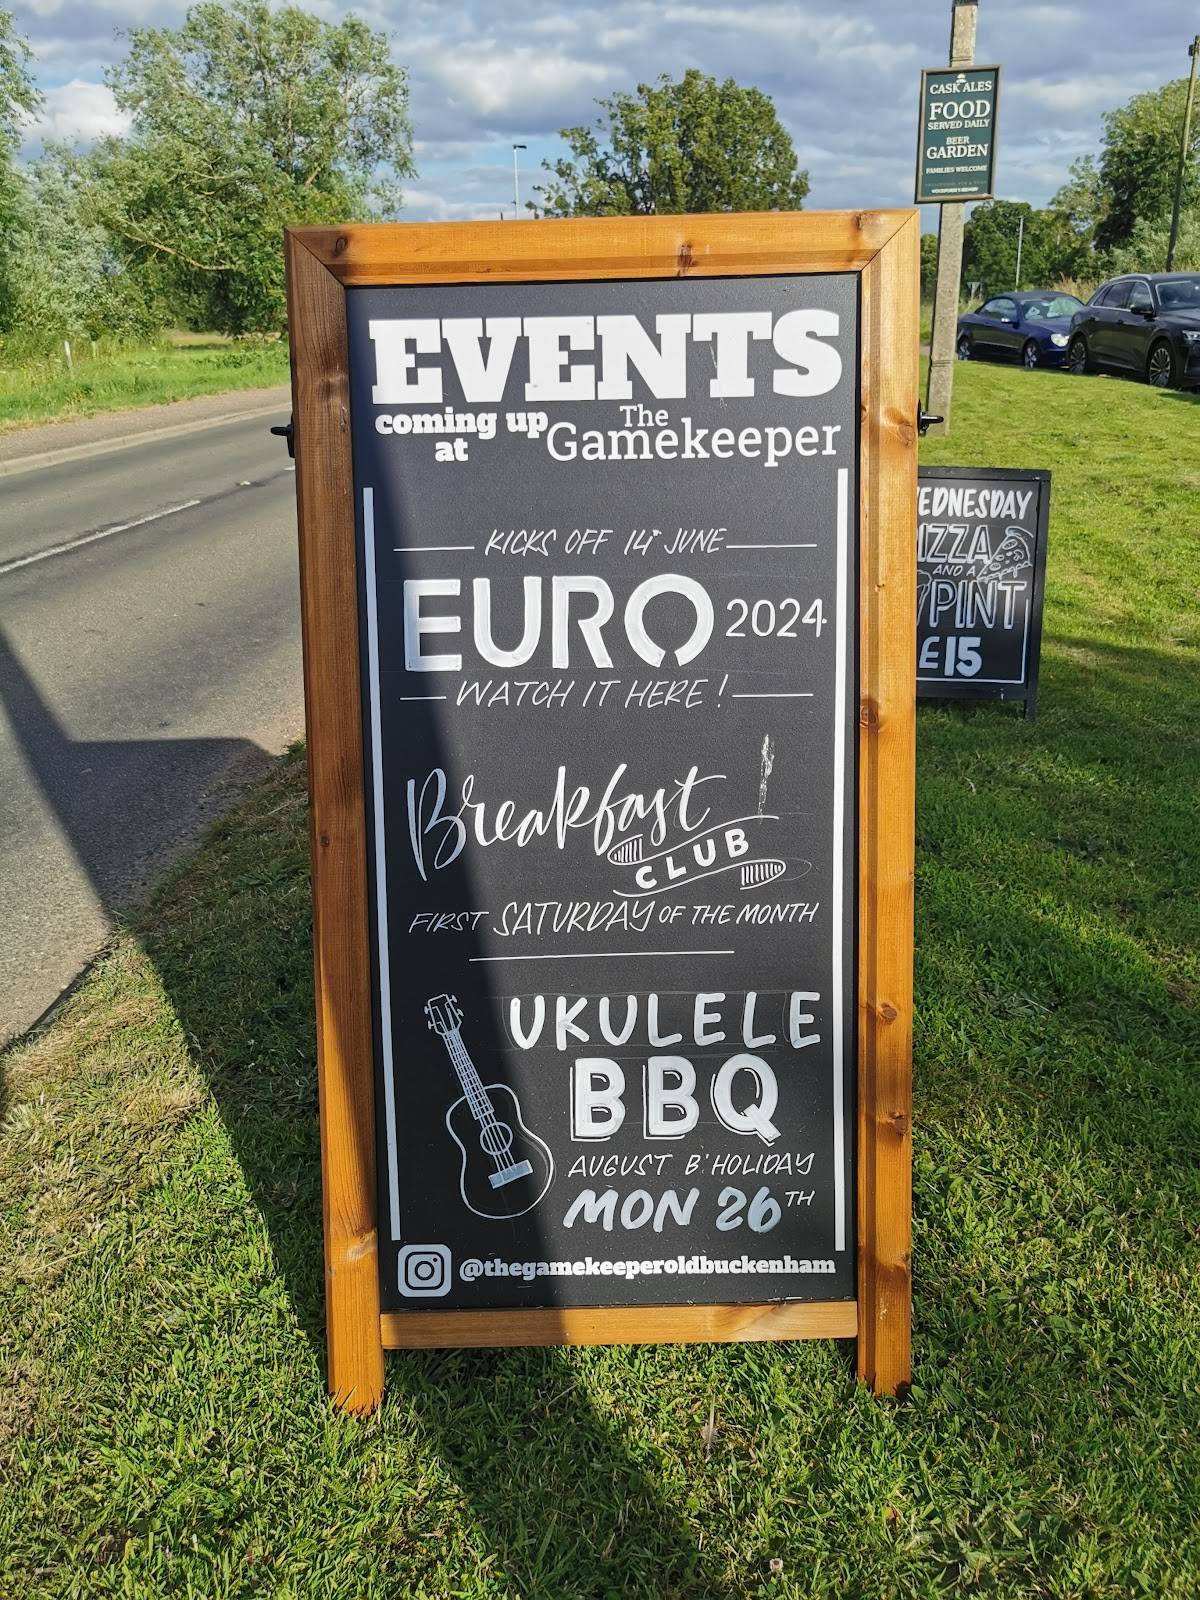 EVENTS
coming up
at
The
Gamekeeper
KICKS OFF 14TH JUNE
EURO 2024
WATCH IT HERE!
Breakfast
CLUB
FIRST SATURDAY OF THE MONTH
UKULELE
BBQ
AUGUST B'HOLIDAY
MON 26TH
@thegamekeeperoldbuckenham
CASK ALES
FOOD
SERVED DAILY
BEER
GARDEN
FAMILIES WELCOME
EDNESDAY
IZZA
AND A
PINT
£15